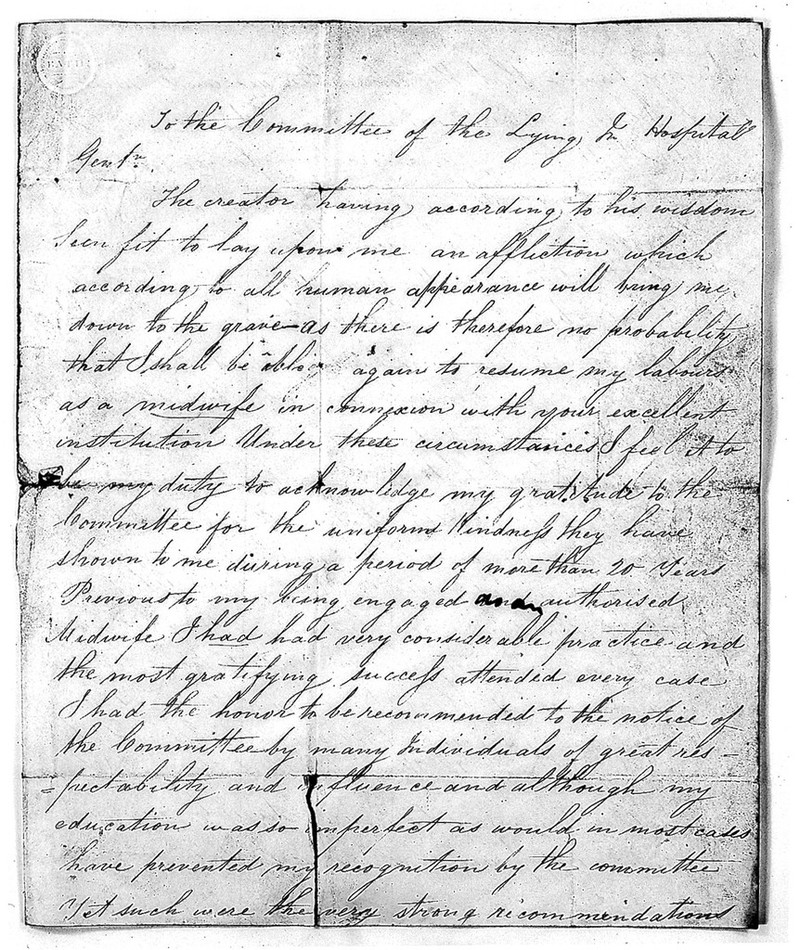 BATH
To the Committee of the Lying In Hospital
Gentn.
The creator having according to his wisdom
Seen fit to lay upon me an affliction which
according to all human appearance will bring me
down to the grave—as there is therefore no probability
that I shall be able again to resume my labours
as a midwife in connexion with your excellent
institution Under these circumstances I feel it to
be my duty to acknowledge my gratitude to the
Committee for the uniform kindness they have
shown to me during a period of more than 20 Years
Previous to my being engaged authorised
Midwife I had had very considerable practice and
the most gratifying success attended every case
I had the honor to be recommended to the notice of
the Committee by many Individuals of great res-
-pectability and influence and although my
education was so imperfect as would in most cases
have prevented my recognition by the committee
Yet such were the very strong recommendations